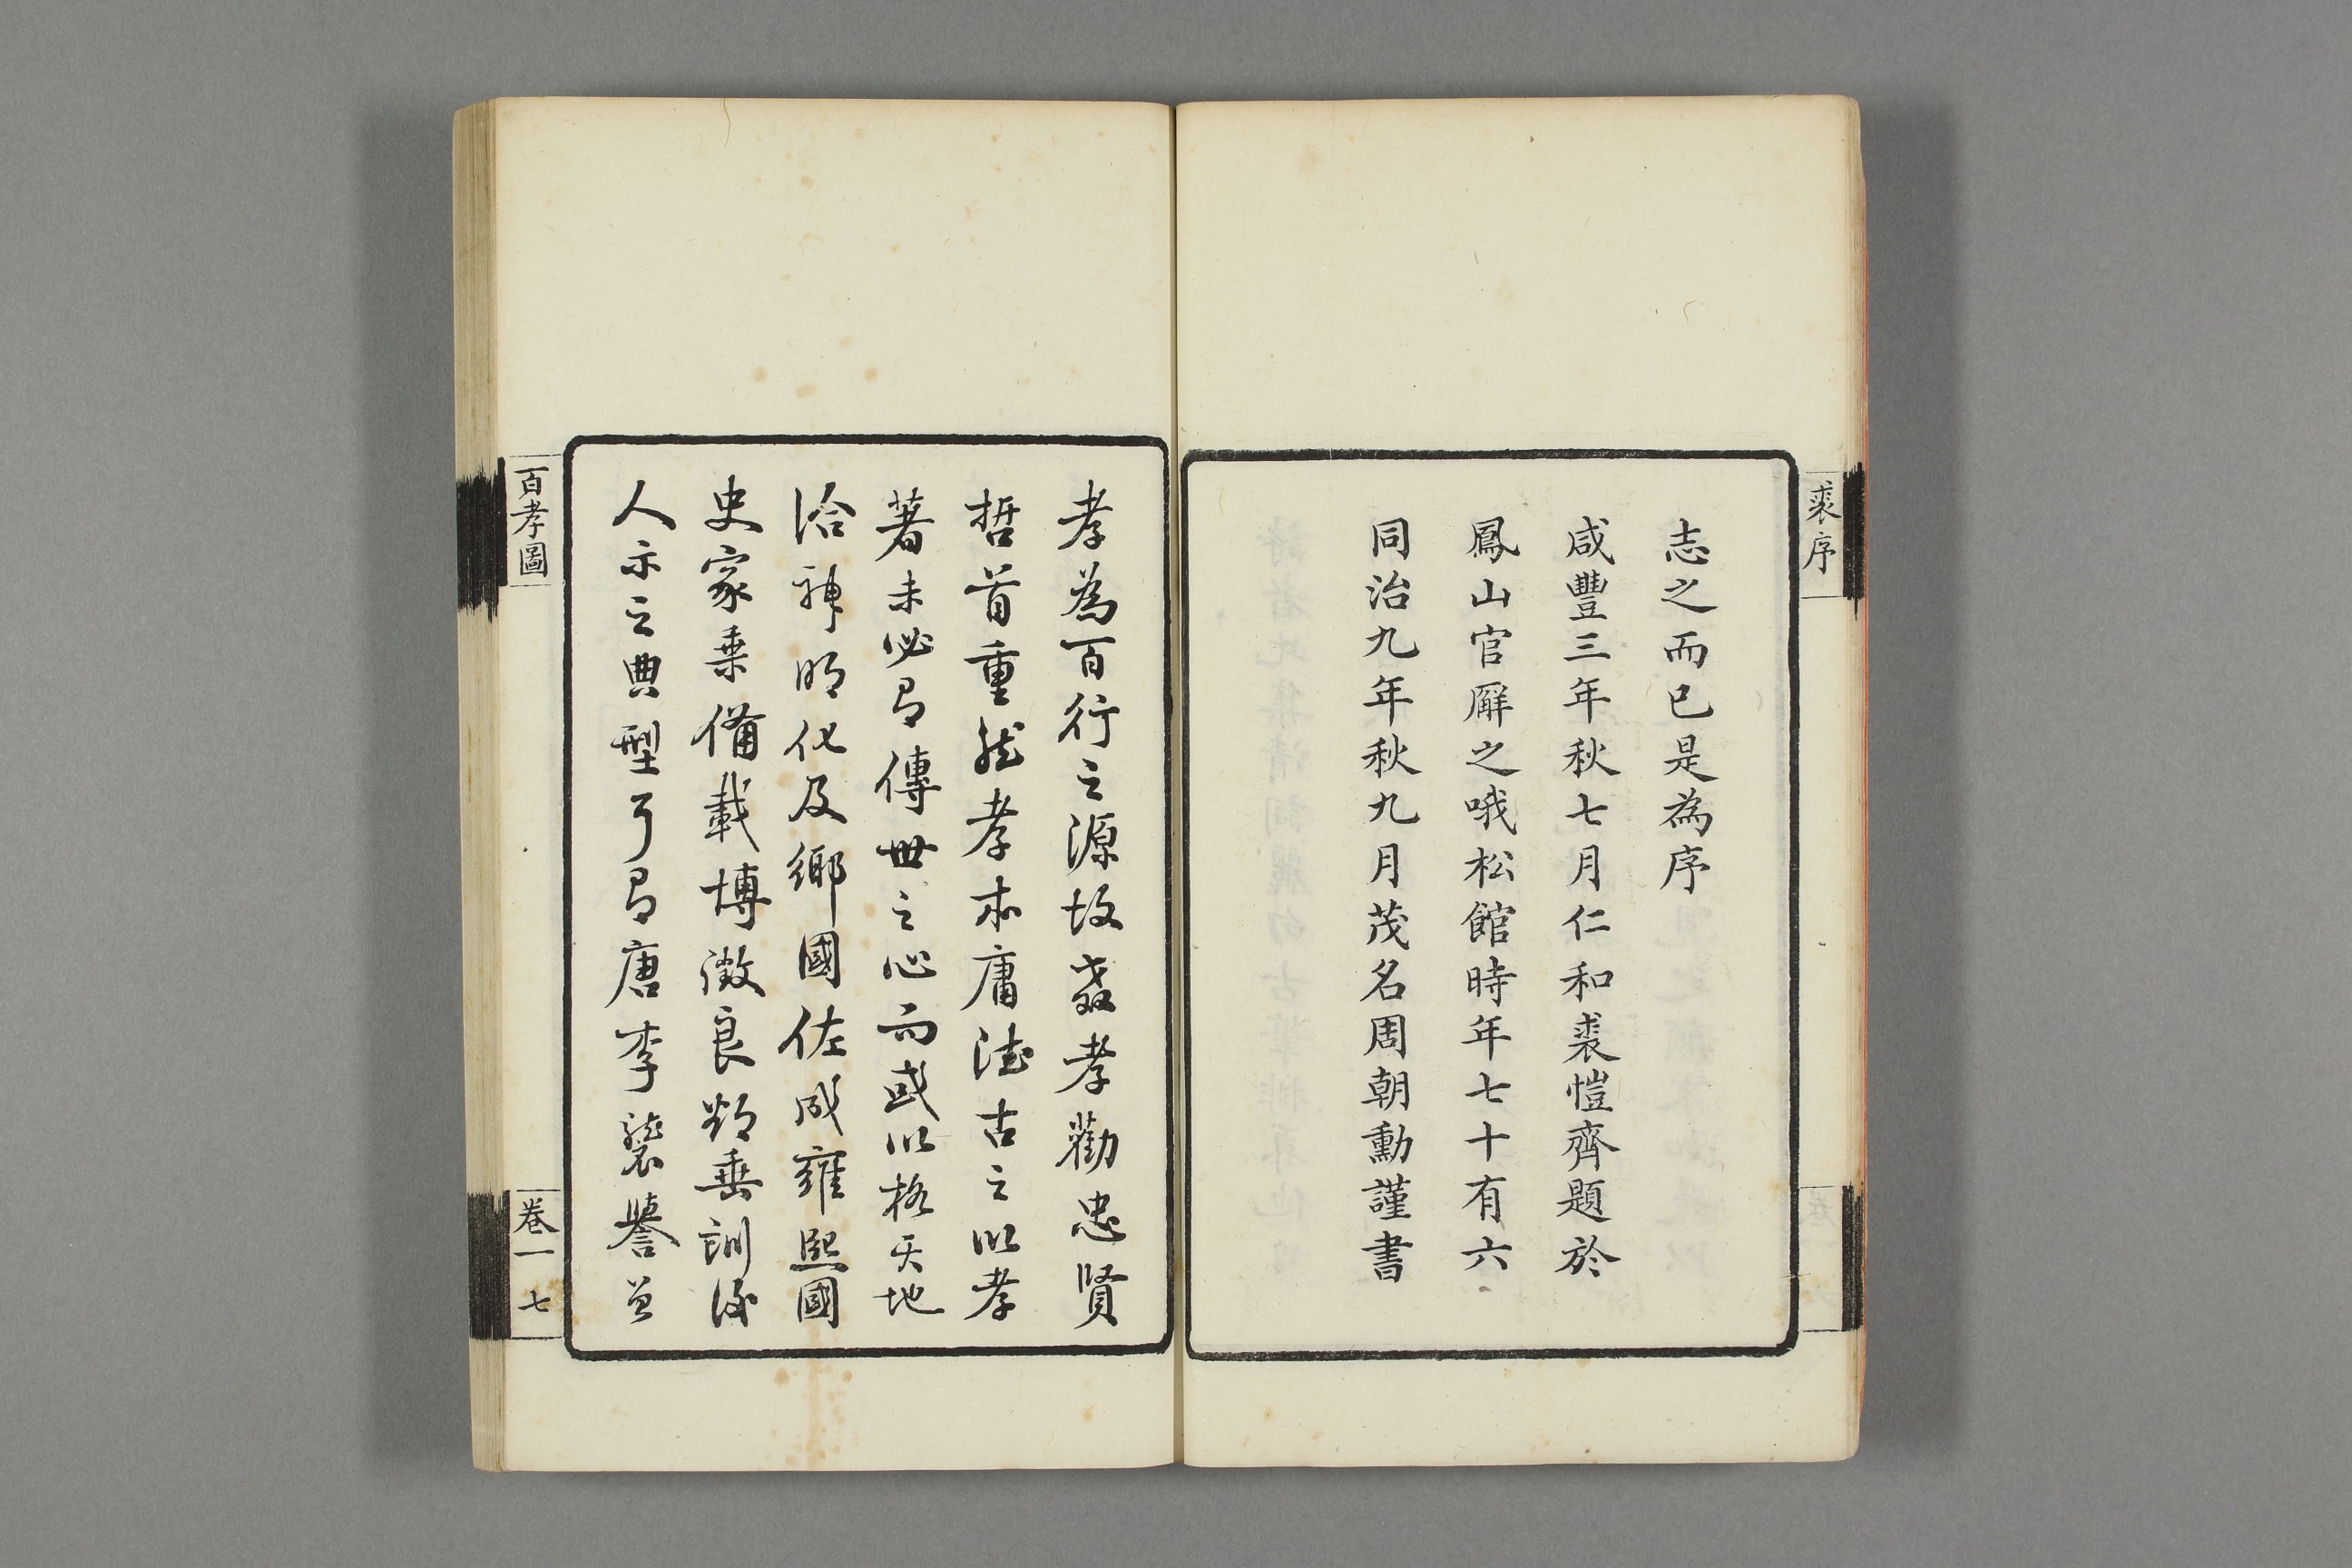 裘序
志之而已是為序
咸豐三年秋七月仁和裘愷齊題於
鳳山官廨之哦松館時年七十有六
同治九年秋九月茂名周朝勳謹書
孝為百行之源故教孝勸忠賢
哲首重然孝本庸德古之以孝
著未必有傳世之心而或以格天地
洽神明化及鄉國佐成雍熙國
史家乘備載博徵良規垂訓後
人示之典型乎有唐李襲譽曾
百孝圖
卷一
七